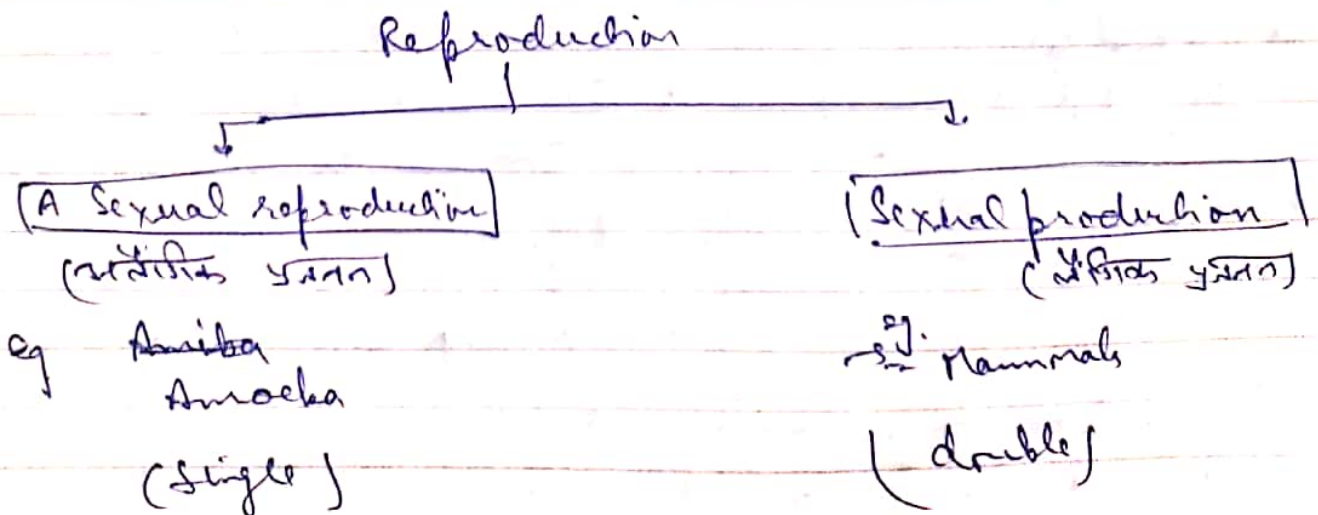 Reproduction
A Sexual reproduction
(अलैंगिक प्रजनन)
eg Amiba
Amoeba
(Single)
Sexual production
(लैंगिक प्रजनन)
eg. Mammals
(double)